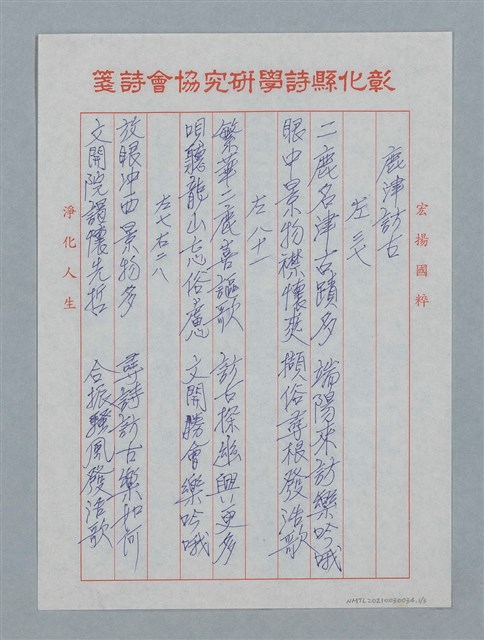 彰化縣詩學研究協會詩箋
宏揚國粹
鹿津訪古
左
二鹿名津古蹟多 端陽來訪樂吟哦
眼中景物襟懷爽 擷俗尋根發浩歌
左八十一
繁華二鹿喜謳歌 訪古探幽興更多
唄聽龍山忘俗慮 文開勝會樂吟哦
左七右二八
放眼冲西景物多 尋詩訪古樂如何
文開院謁懷先哲 合振騷風發浩歌
淨化人生
NMTL20210030034.1/3